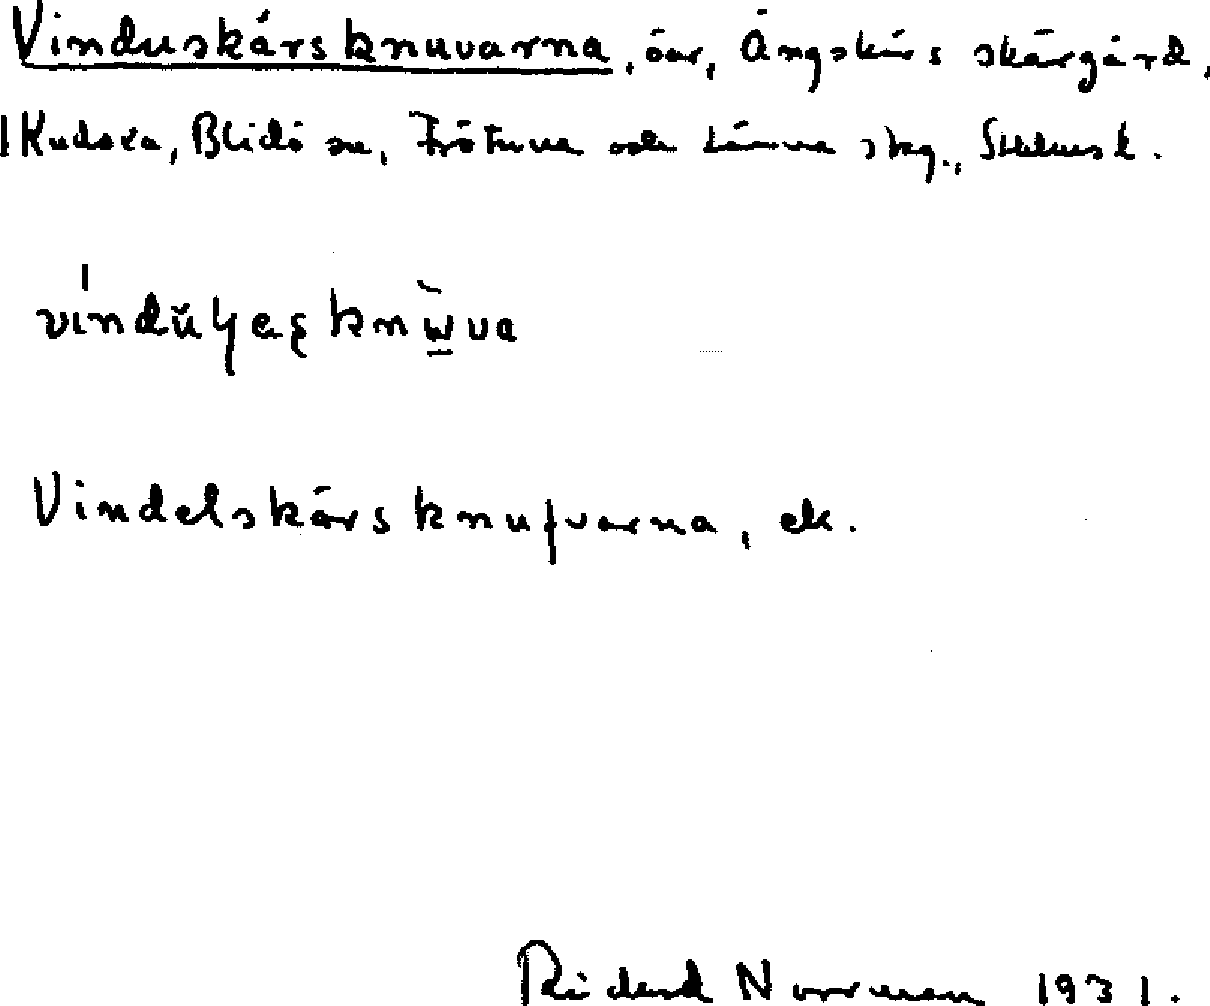 Vinduskärsknuvarna, öar, Ängskärs skärgård,
Kudoxa, Blidö sn, Frötuna och Länna skg., Stockhms l.
vindŭɥeʂknẁva
Vindelskärsknufvarna, ek.
Rickard Norrman 1931.